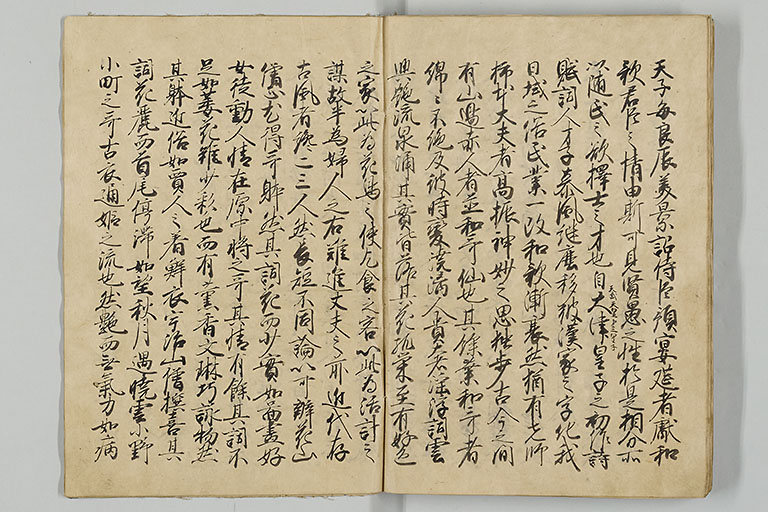 天子毎良辰美景詔侍臣預宴莚者献和
歌君臣之情由斯可見賢愚之性於是相分所
以随民之欲擇士之才也自大津皇子之初作詩
賦詞人才子慕風継塵移彼漢家之字化我
日域之俗民業一改和歌漸衰然猶有先師
柿本大夫者高振神妙之思独歩古今之間
有山邊赤人者並和哥仙也其餘業和哥者
綿々不絶及彼時變澆漓人貴奢淫浮詞雲
興艶流泉涌其實皆落其花孤栄至有好色
之家以此為花鳥之使乞食之客以此為活計之
謀故半為婦人之右難進丈夫之前近代存
古風者纔二三人然長短不同論以可辨花山
僧正尤得哥躰然其詞花而少實如啚畫好
女徒動人情在原中将之哥其情有餘其詞不
足如萎花雖少彩色而有薫香文琳巧詠物然
其躰近俗如賈人之着鮮衣宇治山僧撰喜其
詞花麗而首尾停滞如望秋月遇暁雲小野
小町之哥古衣通姫之流也然艶而無氣力如病